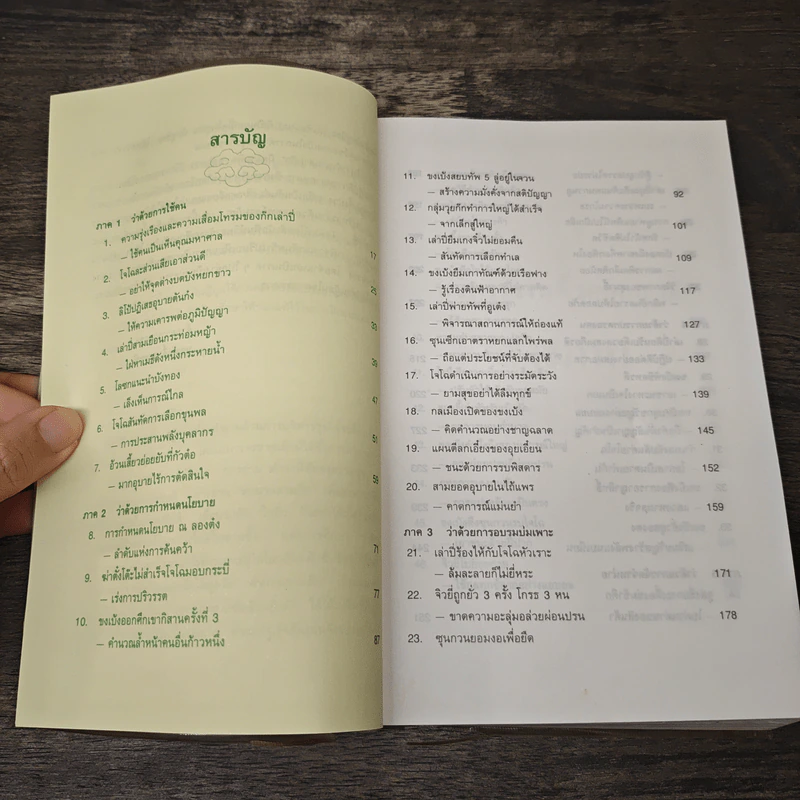 สารบัญ
ภาค 1 ว่าด้วยการใช้คน
1. ความรุ่งเรืองและความเสื่อมโทรมของก๊กเล่าปี่
– ใช้คนเป็นเห็นคุณมหาศาล 17
2. โจโฉละส่วนเสียเอาส่วนดี
– อย่าให้จุดด่างบดบังหยกขาว 25
3. ลิโป้ปฏิเสธอุบายตันก๋ง
– ให้ความเคารพต่อภูมิปัญญา 33
4. เล่าปี่สามเยือนกระท่อมหญ้า
– ใฝ่หาเมธีดังหนึ่งกระหายน้ำ 39
5. โลซกแนะนำบังทอง
– เล็งเห็นการณ์ไกล 47
6. โจโฉสันทัดการเลือกขุนพล
– การประสานพลังบุคลากร 51
7. อ้วนเสี้ยวย่อยยับที่กัวต๋อ
– มากอุบายไร้การตัดสินใจ 59
ภาค 2 ว่าด้วยการกำหนดนโยบาย
8. การกำหนดนโยบาย ณ ลองต๋ง
– ลำดับแห่งการค้นคว้า 71
9. ฆ่าตั๋งโต๊ะไม่สำเร็จโจโฉมอบกระบี่
– เร่งการปริวรรต 77
10. ขงเบ้งออกศึกเขากิสานครั้งที่ 3
– คำนวณล้ำหน้าคนอื่นก้าวหนึ่ง 87
11. ขงเบ้งสยบทัพ 5 ลู่อยู่ในจวน
– สร้างความมั่งคั่งจากสติปัญญา 92
12. กลุ่มวุยก๊กทำการใหญ่ได้สำเร็จ
– จากเล็กสู่ใหญ่ 101
13. เล่าปี่ยืมเกงจิ๋วไม่ยอมคืน
– สันทัดการเลือกทำเล 109
14. ขงเบ้งยืมเกาทัณฑ์ด้วยเรือฟาง
– รู้เรื่องดินฟ้าอากาศ 117
15. เล่าปี่พ่ายทัพที่อูเต๋ง
– พิจารณาสถานการณ์ให้ถ่องแท้ 127
16. ซุนเซ็กเอาตราหยกแลกไพร่พล
– ถือแต่ประโยชน์ที่จับต้องได้ 133
17. โจโฉดำเนินการอย่างระมัดระวัง
– ยามสุขอย่าได้ลืมทุกข์ 139
18. กลเมืองเปิดของขงเบ้ง
– คิดคำนวณอย่างชาญฉลาด 145
19. แผนตีลกเอี๋ยงของอุยเอี๋ยน
– ชนะด้วยการรบพิสดาร 152
20. สามยอดอุบายในไถ้แพร
– คาดการณ์แม่นยำ 159
ภาค 3 ว่าด้วยการอบรมบ่มเพาะ
21. เล่าปี่ร้องไห้กับโจโฉหัวเราะ
– ล้มละลายก็ไม่ยี่หระ 171
22. จิวยี่ถูกยั่ว 3 ครั้ง โกรธ 3 หน
– ขาดความอะลุ่มอล่วยผ่อนปรน 178
23. ซุนกวนยอมงอเพื่อยืด